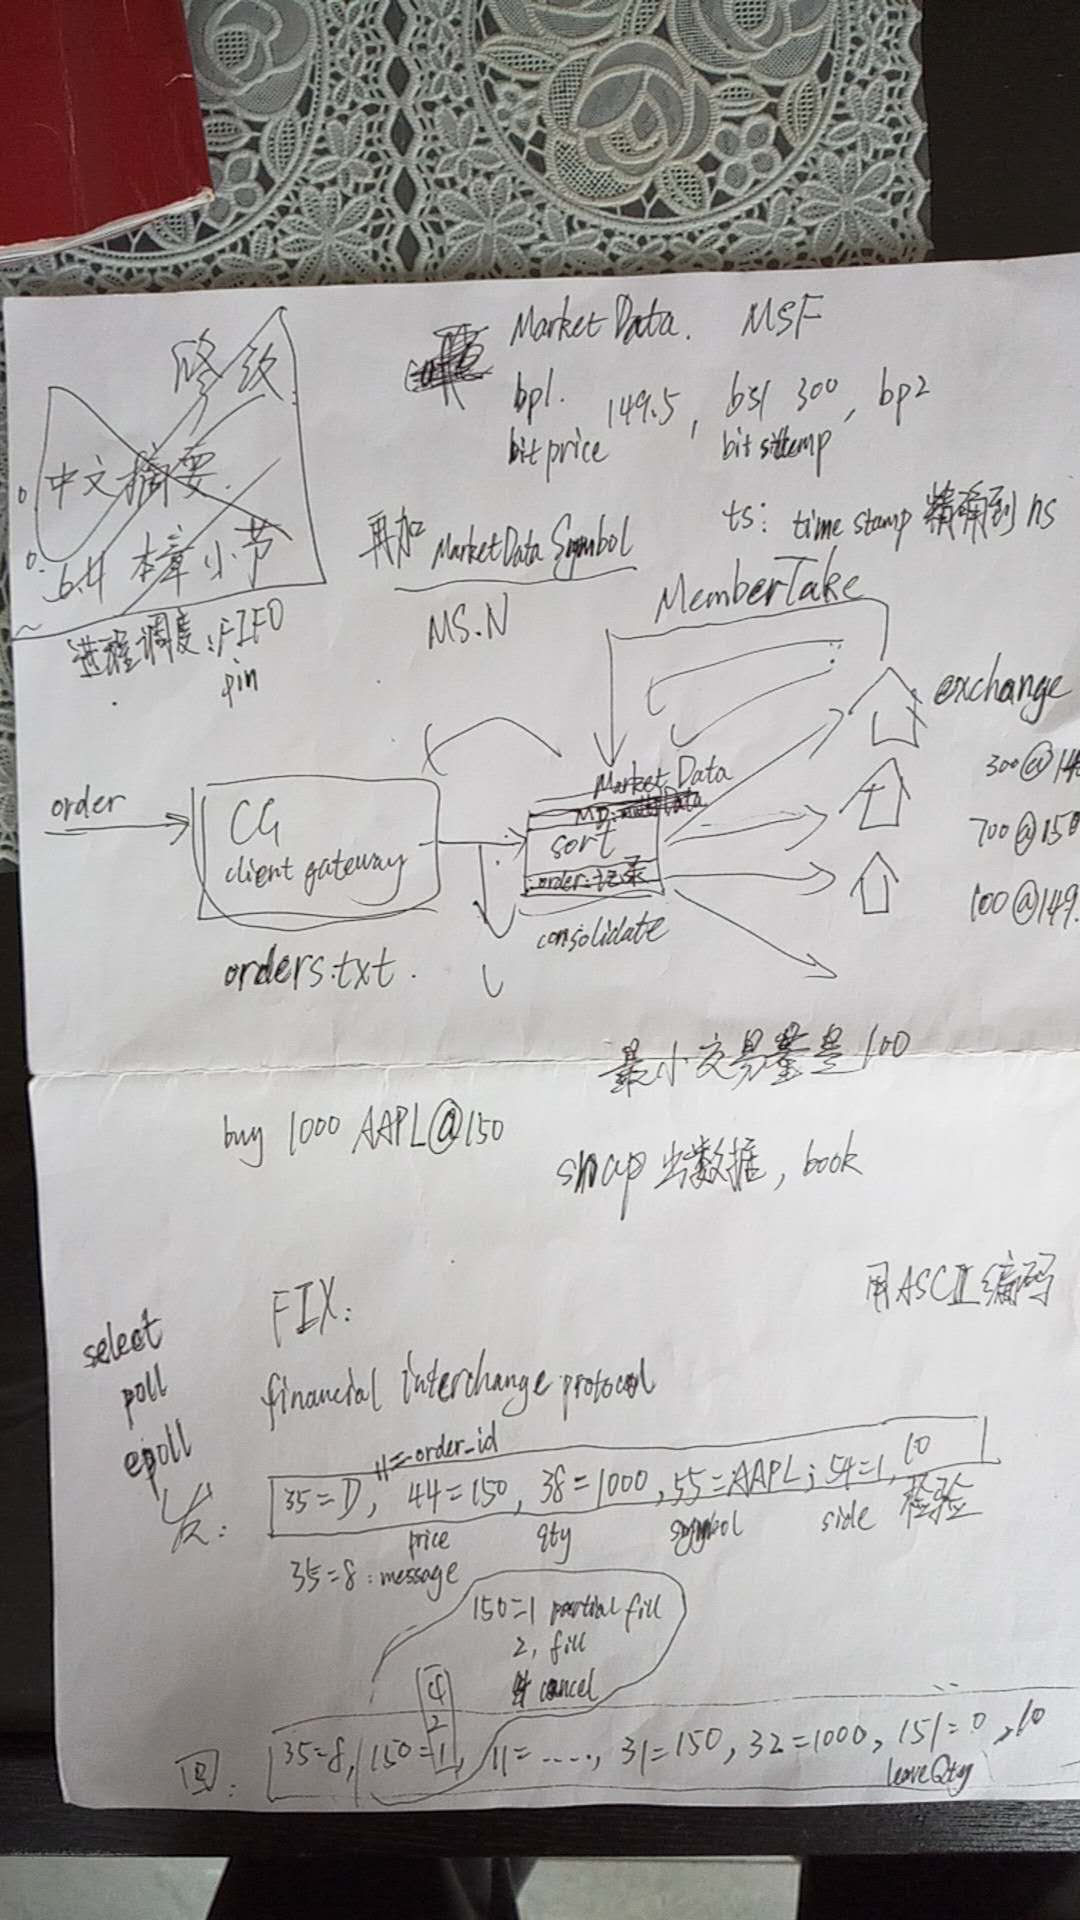 修级
中文摘要
6.4 本章小节
进程调度:FIFO
pin
MarketData. MSF
bp1. 149.5, bs1 300, bp2
bit price
ts: time stamp 精确到ns
再加 MarketData Symbol
MS.N
MemberTake
exchange
order
CG
client gateway
orders.txt.
Market Data
sort
order:记录
consolidate
300@14
700@150
100@149.
最小交易量是100
buy 1000 AAPL@150
snap出数据, book
用ASCII编码
select
poll
epoll
FIX:
financial interchange protocol
11=order_id
发: 35=D, 44=150, 38=1000, 55=AAPL; 54=1, 10
price qty symbol side 检验
35=8: message
150=1 partial fill
2, fill
4 cancel
4
2
回: 35=8, 150=1, 11=....., 31=150, 32=1000, 151=0, 10
leaveQty